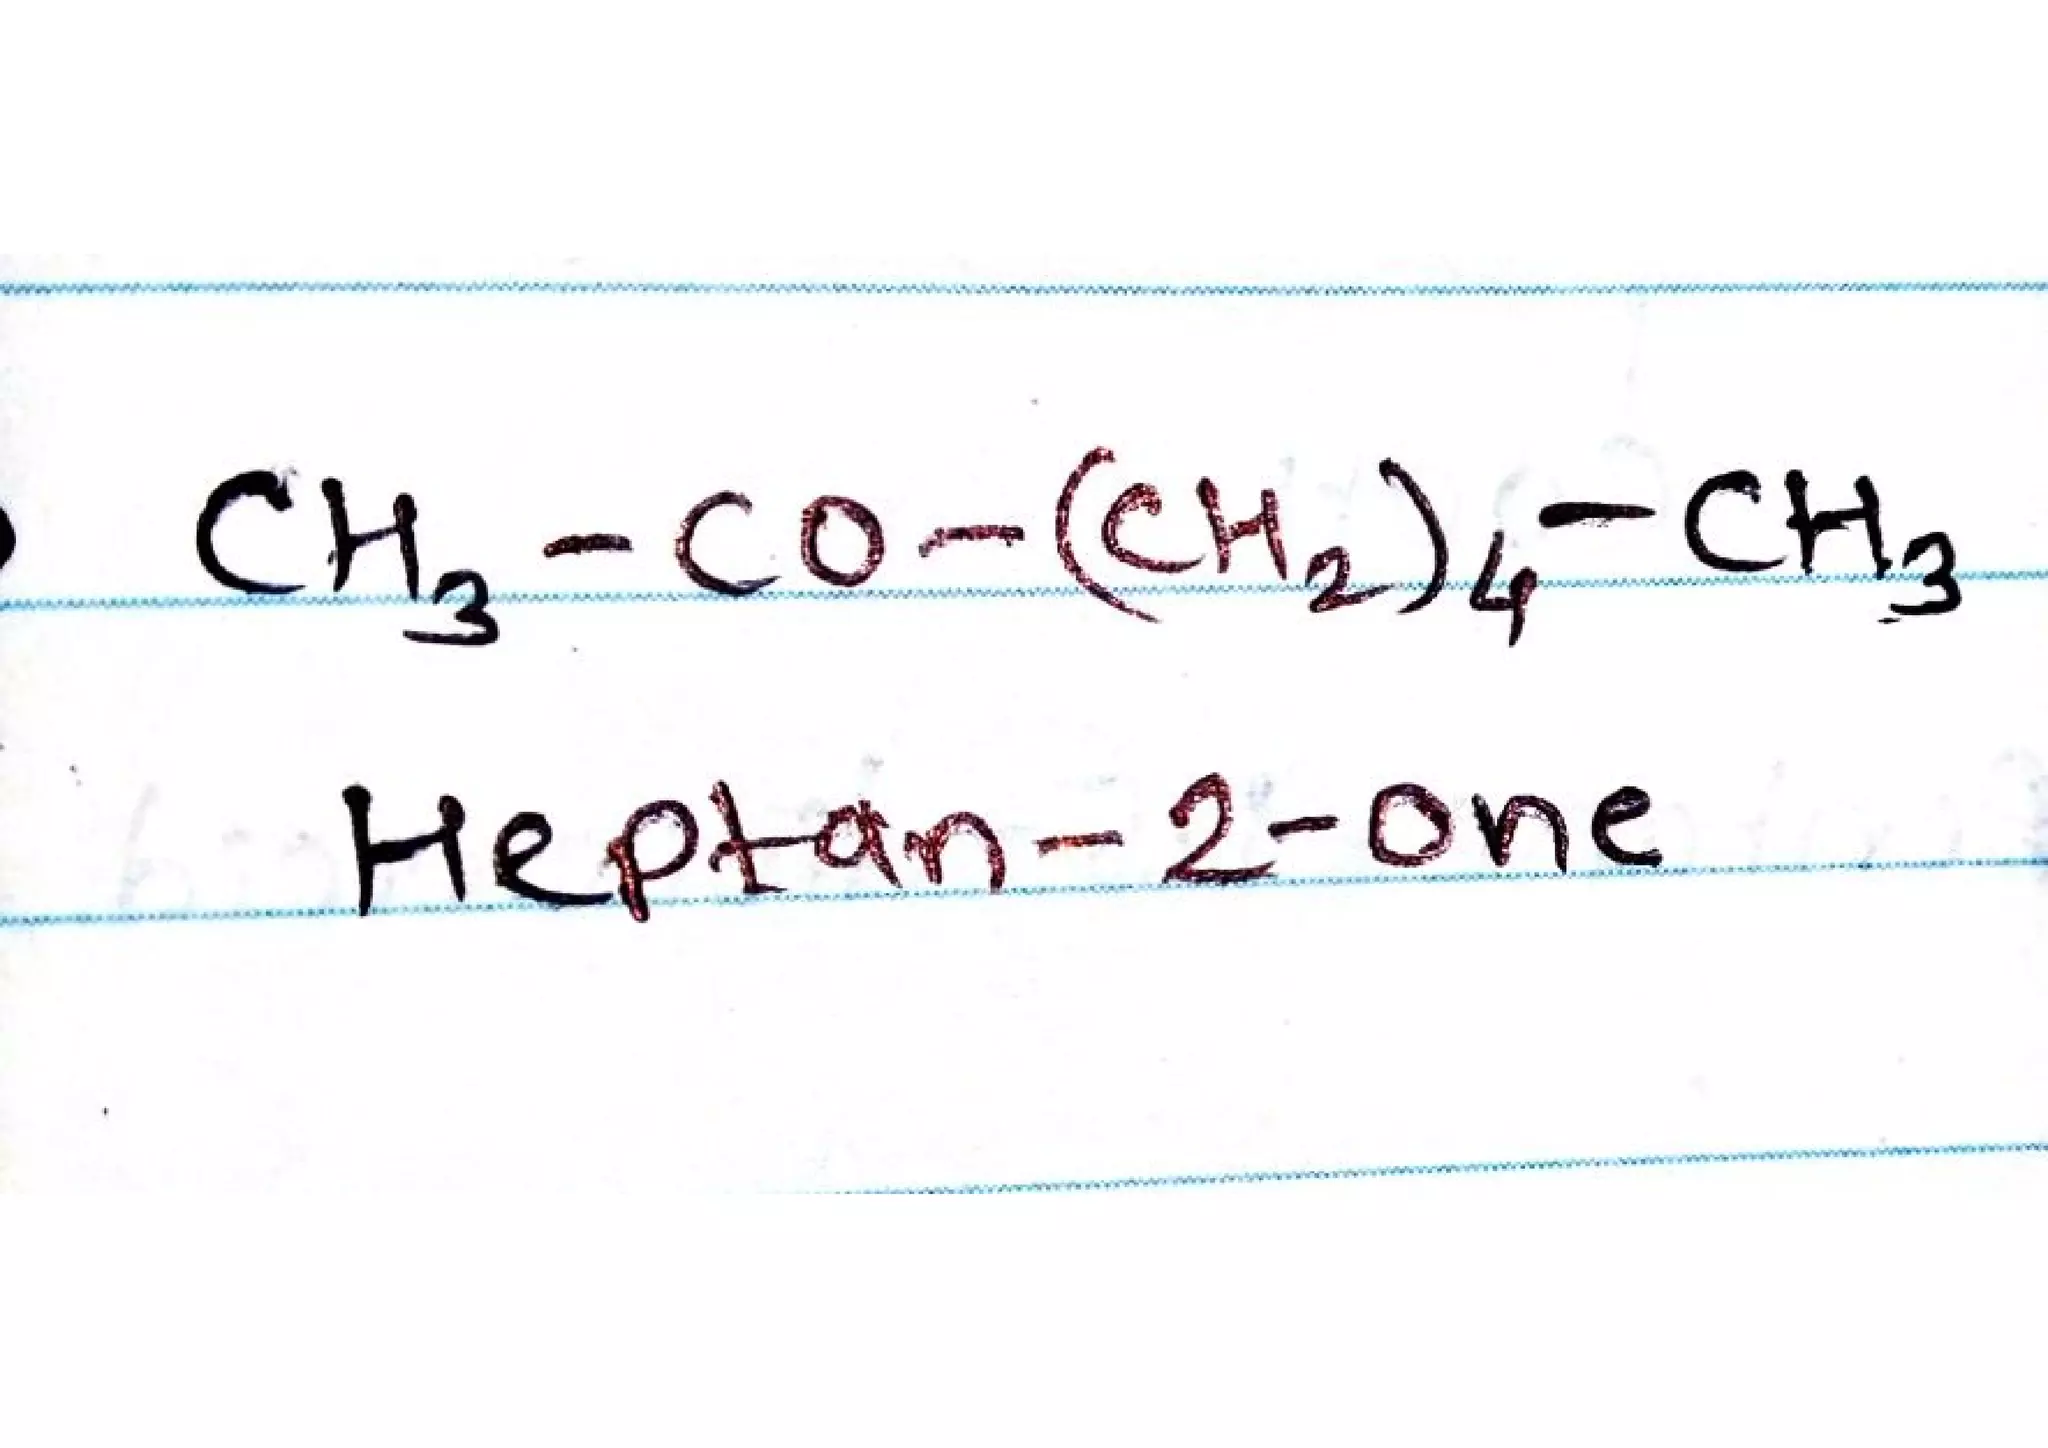 CH₃ - CO - (CH₂)₄ - CH₃
Heptan - 2 - one